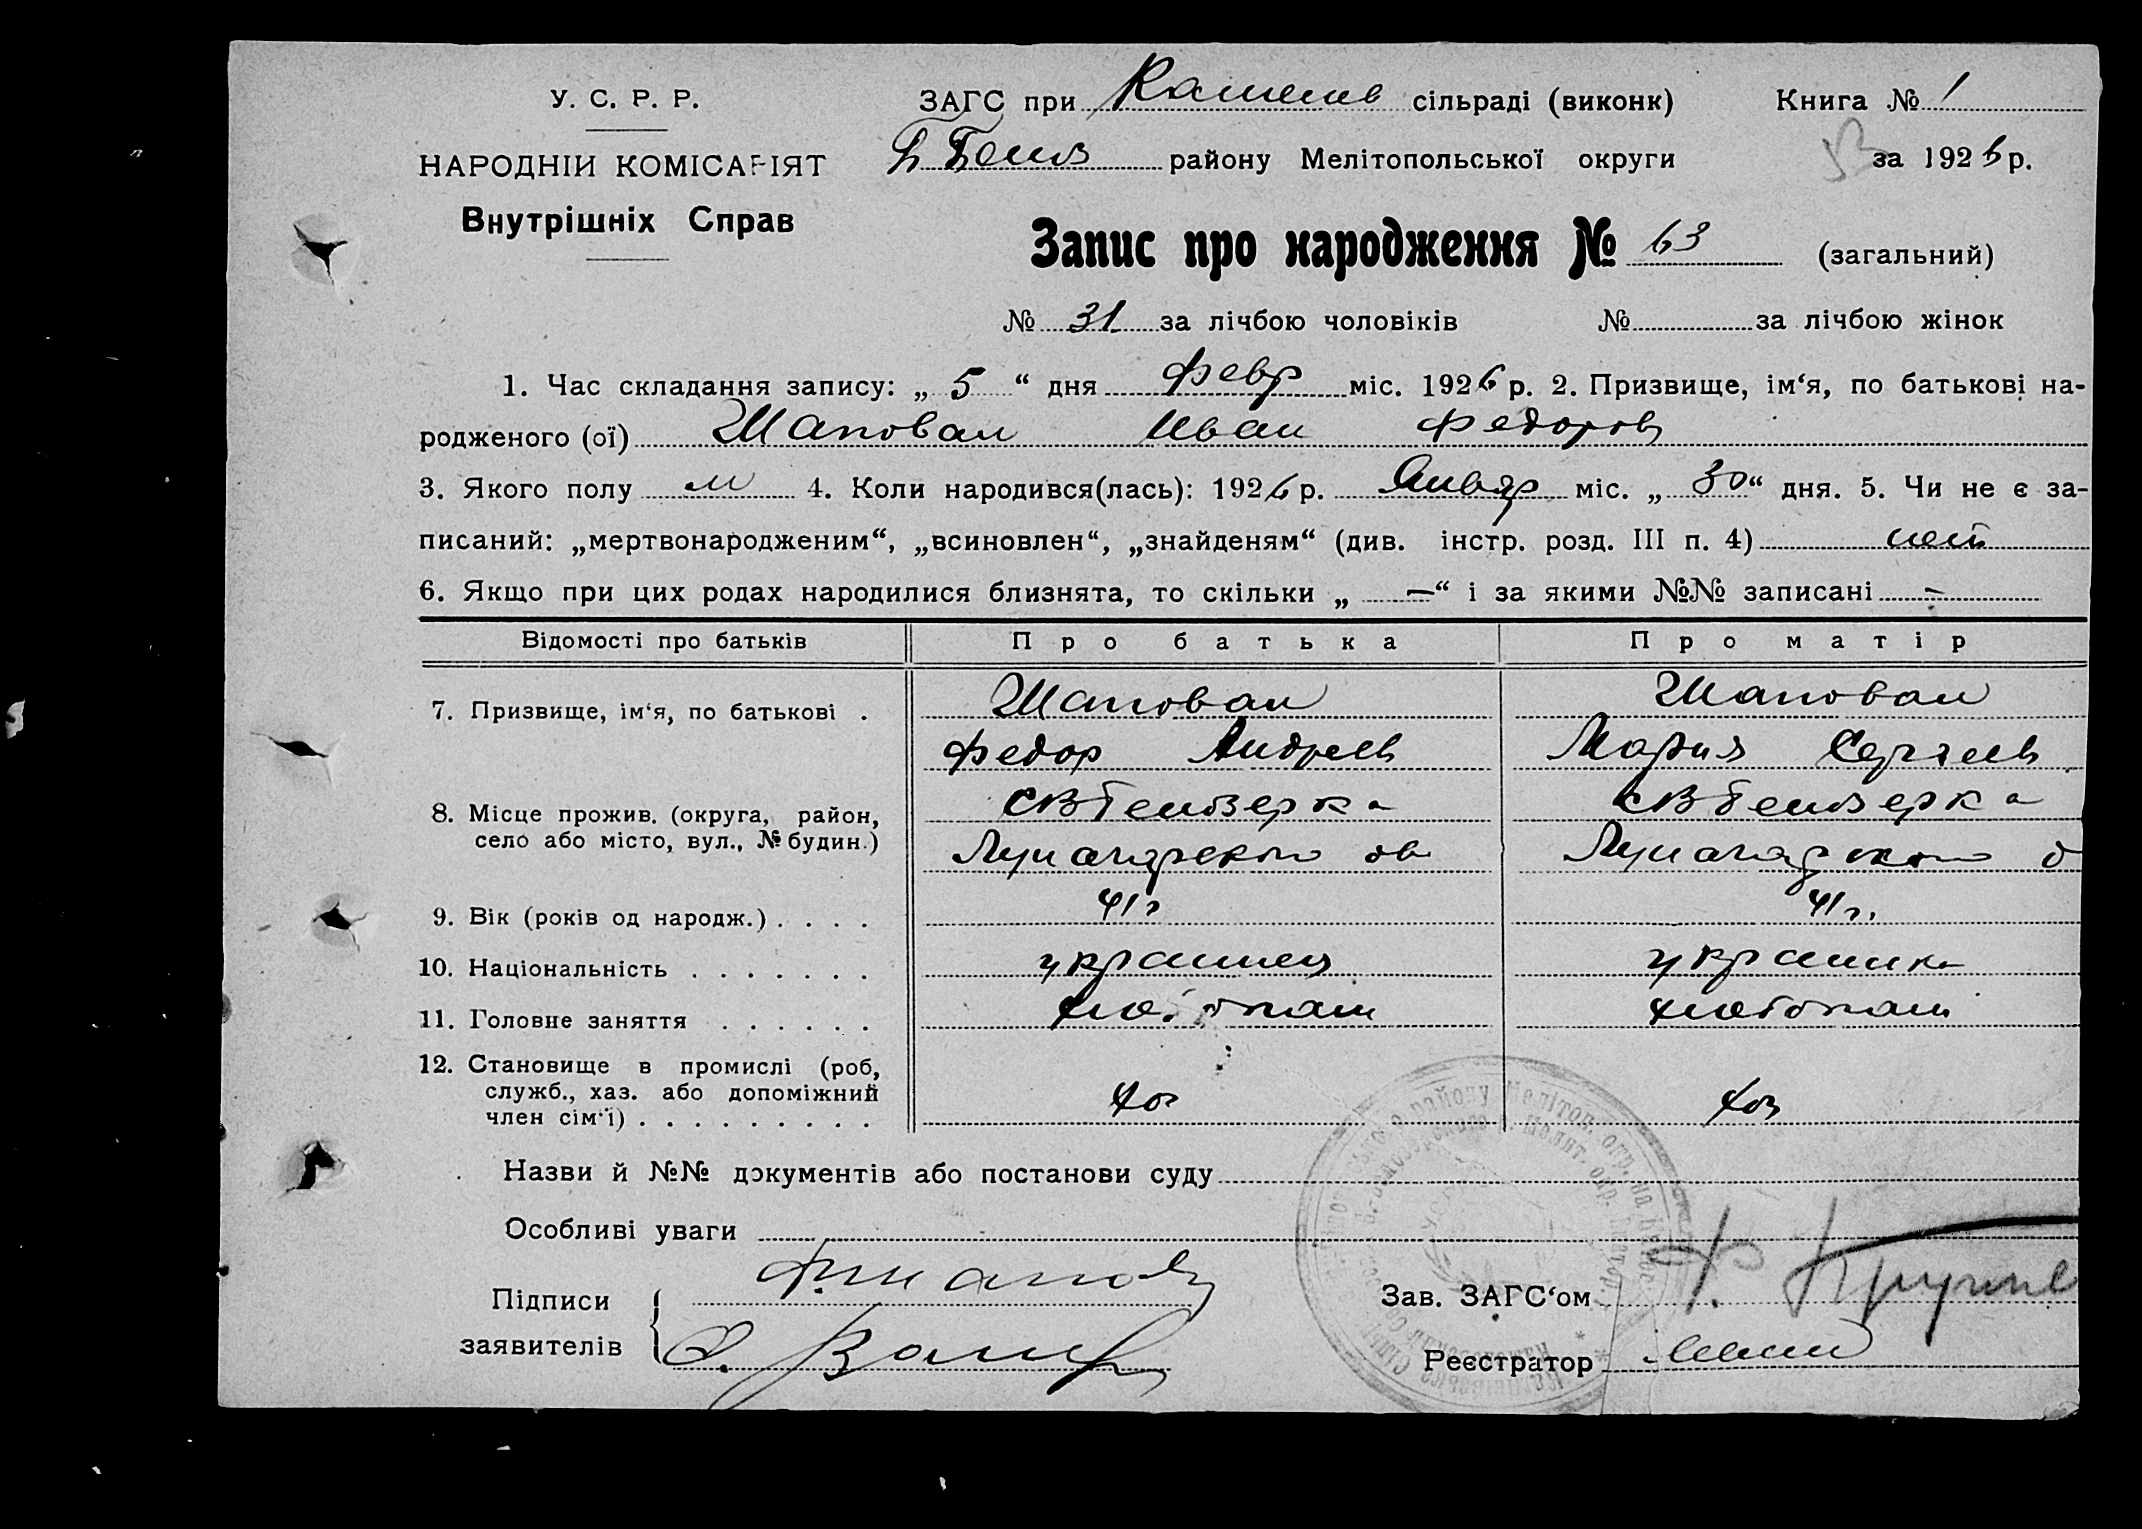 У. С. Р. Р.
НАРОДНІЙ КОМІСАРІЯТ
Внутрішніх Справ
ЗАГС при сільраді (виконк) Книга № 1
району Мелітопольської округи за 1926 р.
Запис про народження № 63 (загальний)
№ 31 за лічбою чоловіків № за лічбою жінок
1. Час складання запису: „ 5 “ дня февр міс. 1926 р. 2. Призвище, ім‘я, по батькові на-
родженого (ої) Шаповал Иван Федоров
3. Якого полу м 4. Коли народився(лась): 1926 р. Январ міс. „ 30 “ дня. 5. Чи не є за-
писаний: „мертвонародженим“, „всиновлен“, „знайденям“ (див. інстр. розд. III п. 4) нет
6. Якщо при цих родах народилися близнята, то скільки „ — “ і за якими №№ записані -
Відомості про батьків Про батька Про матір
7. Призвище, ім‘я, по батькові . Шаповал Шаповал
Федор Андреев Мария Сергеев
8. Місце прожив. (округа, район,
село або місто, вул., № будин.)
9. Вік (років од народж.) . . . . 41 г 41 г.
10. Національність . . . . . . . украинец украинка
11. Головне заняття . . . . . . хлебопаш хлебопаш
12. Становище в промислі (роб,
служб., хаз. або допоміжний
член сім‘ї) . . . . . . . . . хоз хоз
Назви й №№ документів або постанови суду
Особливі уваги
Підписи
заявителів
Зав. ЗАГС‘ом
Реєстратор